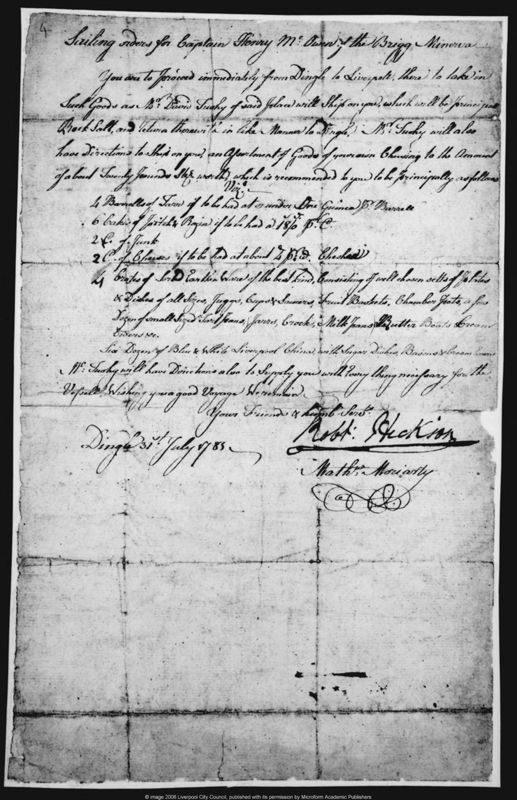 4
Sailing orders for Captain Henry Mc. Owen of the Brigg Minerva
You are to proceed immediately from Dingle to Liverpole, there to take in
Such Goods as Mr. David Tuohy of said place will Ship on you, which will be principally
Rock Salt, and return therewith in like Manner to Dingle, Mr. Tuohy will also
have Directions to Ship on you, an Assortment of Goods of your own Chusing to the Amount
of about Twenty pounds Stg. worth, which is recommended to you to be principally as follows
Vizt.
4 Barrells of if to be had at or under One Guinea pr. Barrell
6 of Pitch & if to be had a 18/0 pr. C
2 C. of Junk
2 C. of Cheeses if to be had at about 4 pr. lb.
4 Crates of Earthen Ware of the best Kind, Consisting of well chosen setts of plates
& Dishes of all Sizes, Juggs, Cups & Saucers, Fruit Baskets, Chamber Potts, a few
Dozen of small Sized Jarrs, Crocks, Milk pans, Butter Boats, Cream
Six Dozen of Blue & White Liverpool China with Sugar Dishes Basons & Cream
Mr. Tuohy will have Directions also to Supply you with Every thing necessary for the
Vessell. Wishing you a good Voyage We remain
Your Friends & humb. Servts.
Dingle 31st. July 1783
Robt. Hickson
Mathw. Moriarty
© image 2006 Liverpool City Council, published with its permission by Microform Academic Publishers